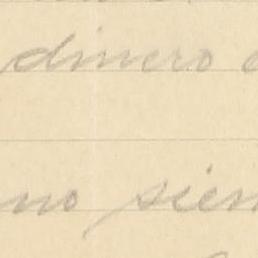 dinero
no sien